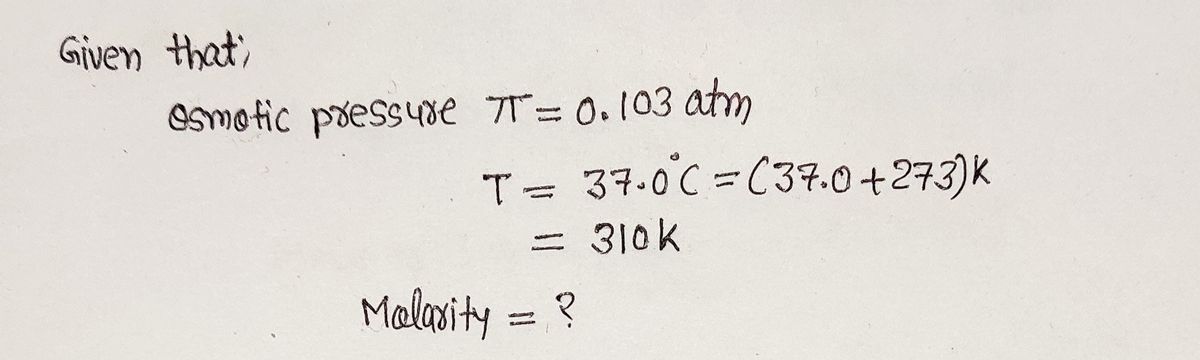 Given that;
Osmotic pressure π = 0.103 atm
T = 37.0°C = (37.0+273)K
= 310K
Molarity = ?